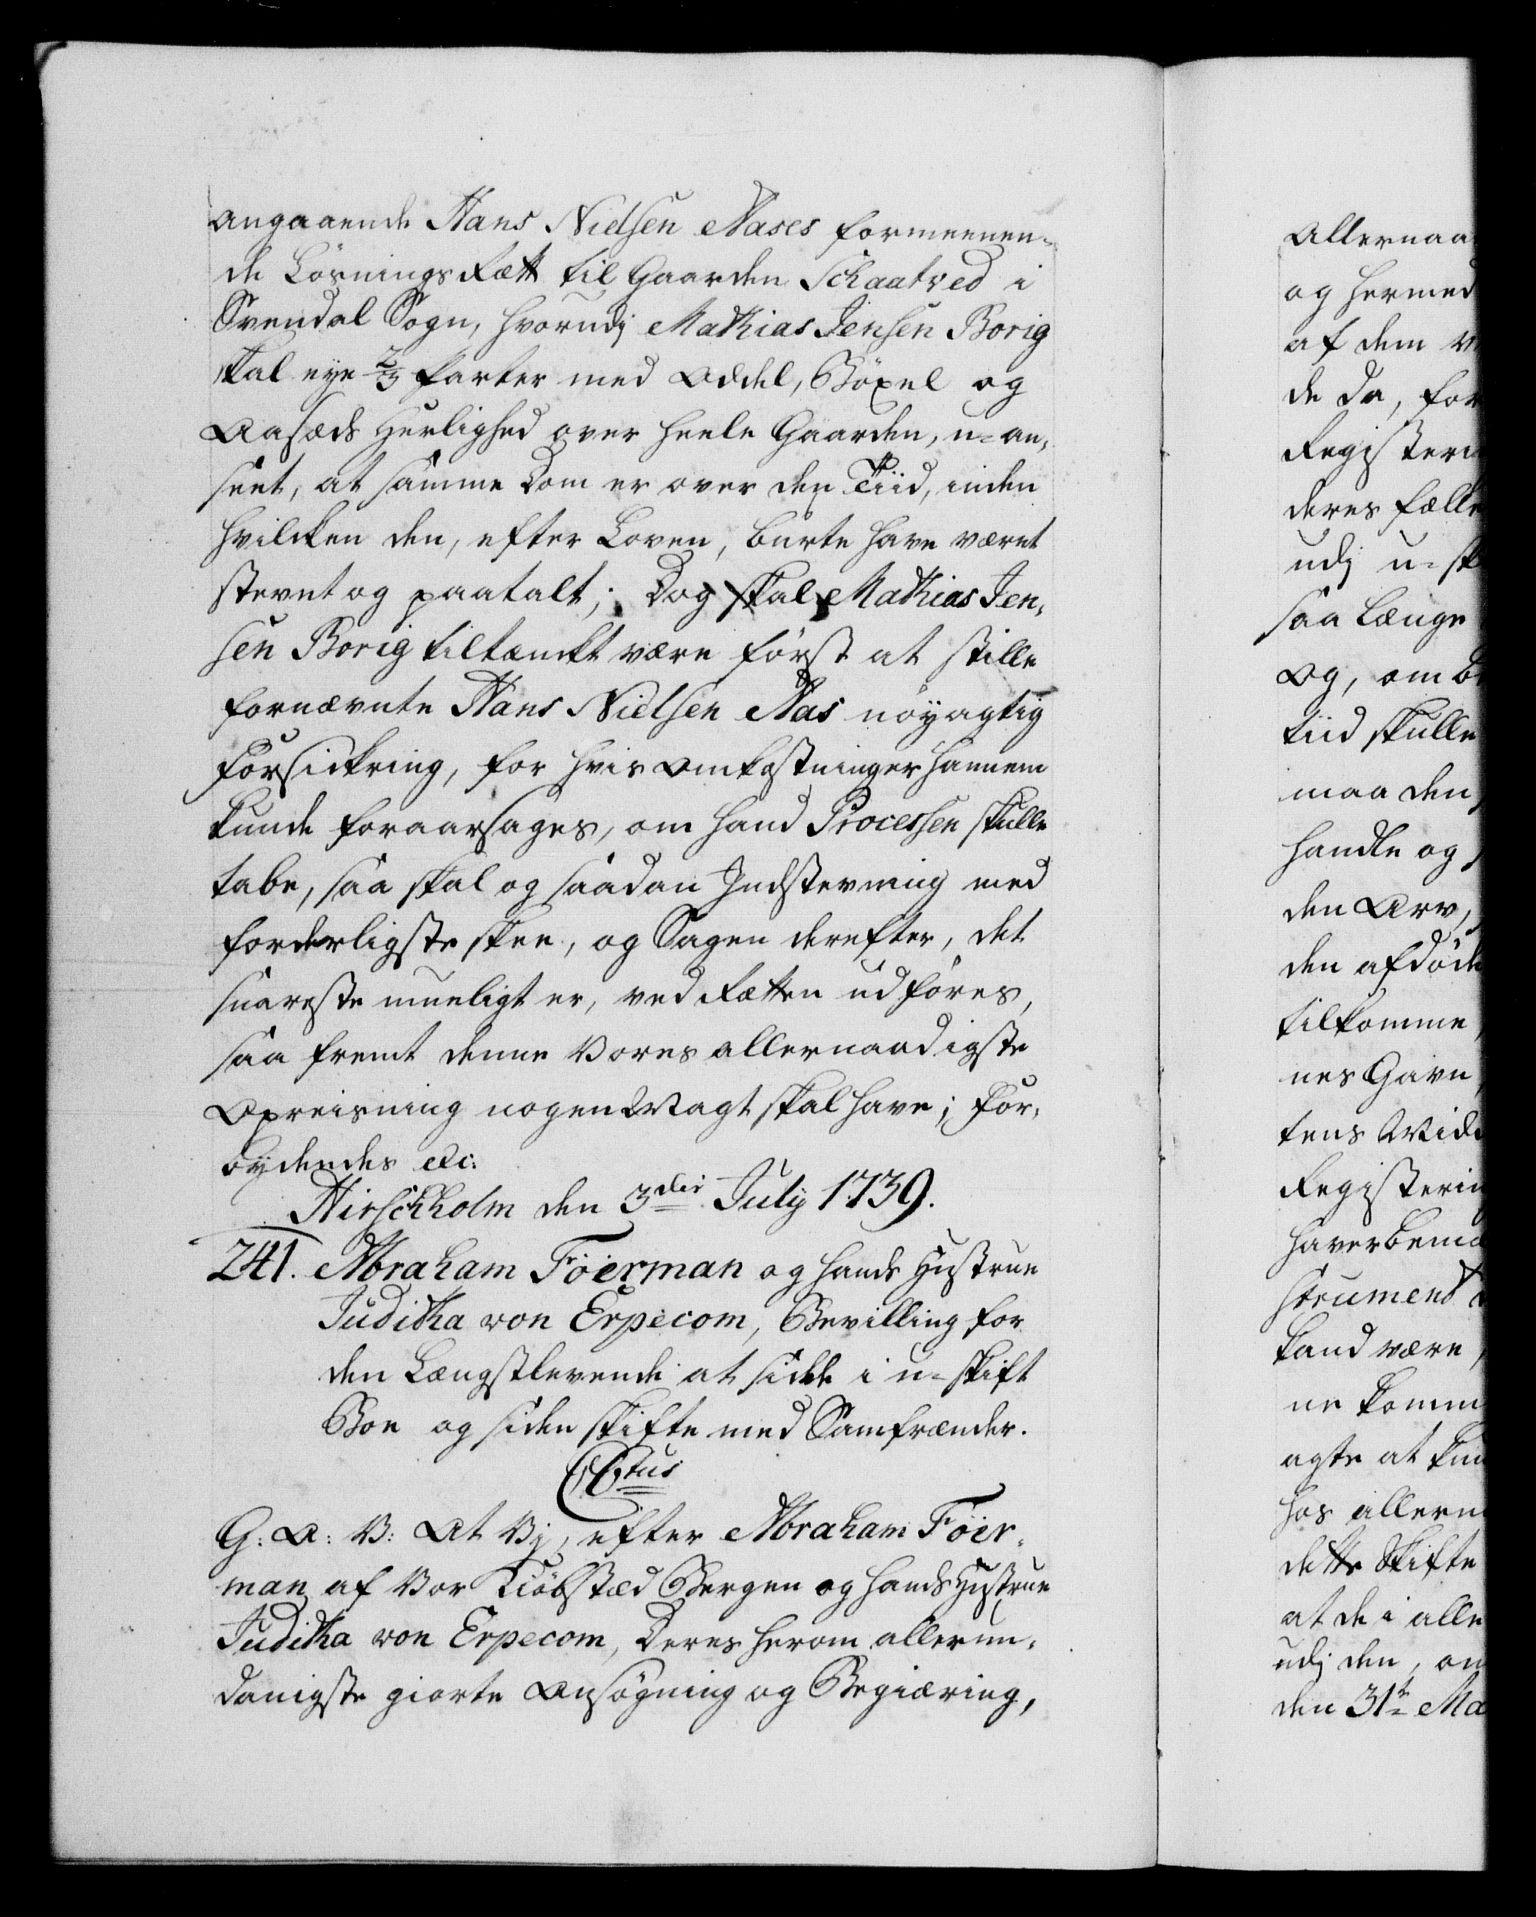 angaaende Hans Nielsen Nases formeenen-
de Løsnings Rætt til Gaarden Schaatved i
Svendal Sogn, hvorudj Mathias Jensen Borig
skal eye 2/3 parter med Oddel, Böxel og
Aasæds Herlighed over heele Gaarden, u-an-
seet, at samme Dom er over den Tiid, inden
hvilcken den, efter Loven, burte have været
stevnt og paatalt; Dog skal Mathias Jen-
sen Borig tiltænckt være först at stille
fornævnte Hans Nielsen Nas nöyagtig
Forsickring, for hvis Omkostninger hannem
kunde foraarsages, om hand Processen skulle
tabe, saa skal og saadan Indstevning med
forderligste skee, og Sagen derefter, det
snareste mueligt er, ved Rætten udföres,
saa fremt denne Vores allernaadigste
Opreisning nogen Magt skal have; For-
bydendes etc:
Hirschholm den 3die July 1739.
241. Abraham Föerman og hands Hustrue
Juditha von Erpecom, Bevilling for
den Længstlevende at sidde i u-skift
Boe og siden skifte med Samfrænder.
C6tus
G: A: V: At Vj, efter Abraham Föer-
man af Vor Kiöbstæd Bergen og hands Hustrue
Juditha von Erpecom, Deres herom allerun-
danigste giorte Ansögning og Begiæring,
Allernaa
og hermed
af dem
de da, for
Registeri
deres fælle
udj u-sk
saa længe
Og, om
tiid skulle
maa den
handle og
den Arv,
den afdöde
tilkomme
nes Gavn
tens Vide
Registerin
haver
strument
kand være
ne komm
agte at kun
hos allern
dette Skifte
at de i alle
udj den, om
den 31te Ma